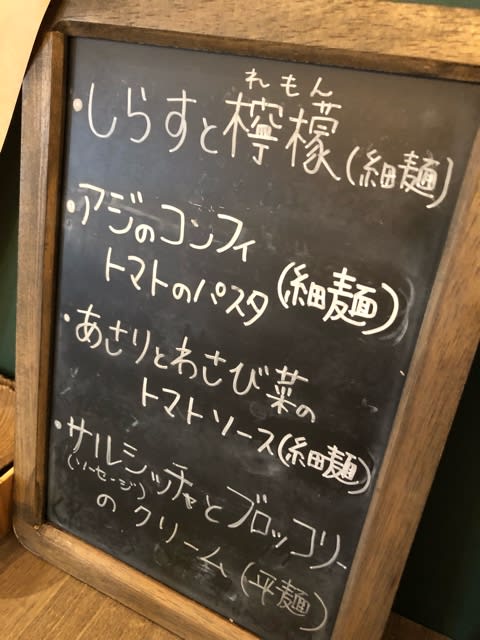 れもん
・しらすと檸檬(細麺)
・アジのコンフィ
トマトのパスタ(細麺)
・あさりとわさび菜の
トマトソース(細麺)
・サルシッチャとブロッコリー
(ソーセージ)
のクリーム(平麺)